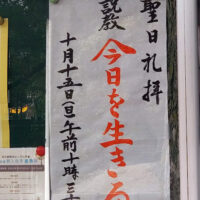 聖日礼拝
説教 今日を生きる
十月十五日(日)午前十時三十